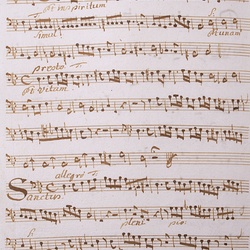 Et in spiritum
Simul
et unam
presto
Et vitam
allegro
Sanctus
pleni
pia: